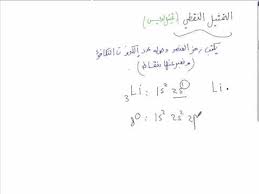 التمثيل النقطي (لويس)
يكتب رمز العنصر وحوله عدد إلكترونات التكافؤ
معبر عنها بنقاط)
₃Li: 1s² 2s¹ Li.
₈O: 1s² 2s² 2p⁴